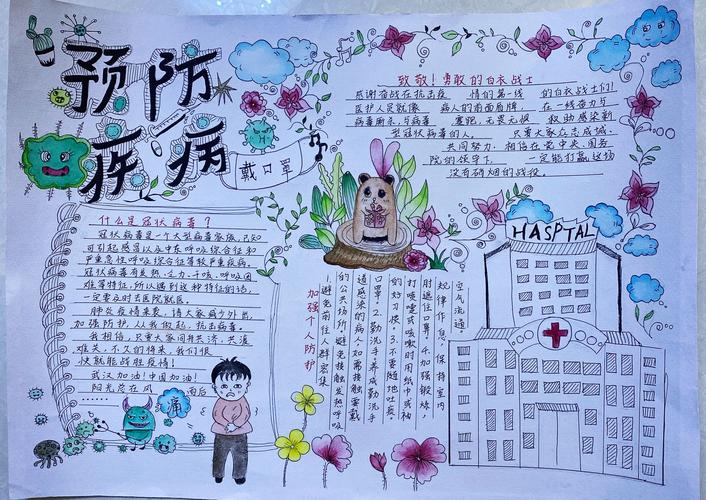 预防
疾病
戴口罩
致敬！勇敢的白衣战士
感谢奋战在抗击疫 情们第一线 的白衣战士们！
医护人员就像 病人的前面盾牌， 在一线奋力与
病毒厮杀，与病毒 赛跑，无畏无惧 救助感染新
型冠状病毒的人。 只要大家众志成城，
共同努力，相信在党中央、国务
院的领导下， 一定能打赢这场
没有硝烟的战役。
什么是冠状病毒？
冠状病毒是一个大型病毒家族，已知
可引起感冒以及中东呼吸综合征和
严重急性呼吸综合征等较严重疾病。
冠状病毒有发热、乏力、干咳、呼吸困
难等特征，所以遇到这种特征的话，
一定要及时去医院就医。
肺炎疫情来袭，请大家减少外出，
加强防护，从我做起，抗击病毒。
我相信，只要大家同舟共济，共渡
难关，不久的将来，我们很
快就能战胜疫情！
武汉加油！中国加油！
阳光总在风 雨后
……
痛
HASPTAL
加强个人防护
1.避免前往人群密集
的公共场所，避免接触发热呼吸
道感染的病人，如需接触要戴
口罩。2.勤洗手，养成勤洗手
的好习惯。3.不要随地吐痰。
打喷嚏或咳嗽时用纸巾或袖
肘遮住口鼻。4.加强锻炼，
规律作息，保持室内
空气流通